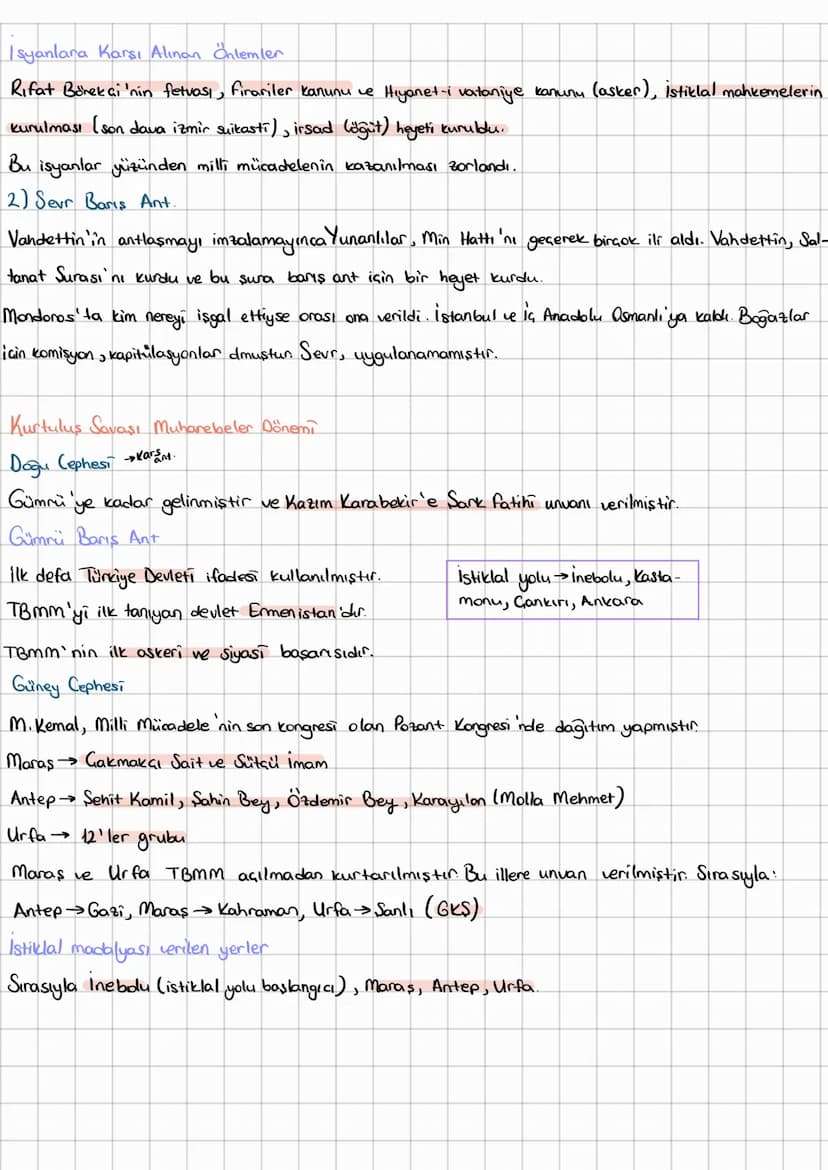 İsyanlara Karşı Alınan Önlemler
Rıfat Börekçi'nin fetvası, firariler kanunu ve Hıyanet-i vataniye kanunu (asker), istiklal mahkemelerin
kurulması (son dava izmir suikasti), irşad (öğüt) heyeti kuruldu.
Bu isyanlar yüzünden milli mücadelenin kazanılması zorlandı.
2) Sevr Barış Ant.
Vahdettin'in antlaşmayı imzalamayınca Yunanlılar, Miln Hattı'nı geçerek birçok ili aldı. Vahdettin, Sal-
tanat Şurası'nı kurdu ve bu şura barış ant için bir heyet kurdu.
Mondoros'ta kim nereyi işgal ettiyse orası ona verildi. İstanbul ve İç Anadolu Osmanlı'ya kaldı. Boğazlar
için komisyon, kapitülasyonlar olmuştur. Sevr, uygulanamamıştır.
Kurtuluş Savaşı Muharebeler Dönemi
Doğu Cephesi → Kars Ant.
Gümrü'ye kadar gelinmiştir ve Kazım Karabekir'e Şark fatihi unvanı verilmiştir.
Gümrü Barış Ant
İlk defa Türkiye Devleti ifadesi kullanılmıştır.
TBMM'yi ilk tanıyan devlet Ermenistan'dır.
TBMM'nin ilk askeri ve siyasi başarısıdır.
İstiklal yolu → İnebolu, Kasta-
monu, Çankırı, Ankara
Güney Cephesi
M. Kemal, Milli Mücadele'nin son kongresi olan Pozant Kongresi'nde dağıtım yapmıştır.
Maraş → Çakmakçı Sait ve Sütçü İmam
Antep → Şehit Kamil, Şahin Bey, Özdemir Bey, Karayılan (Molla Mehmet)
Urfa → 12'ler grubu
Maraş ve Urfa TBMM açılmadan kurtarılmıştır. Bu illere unvan verilmiştir. Sırasıyla:
Antep → Gazi, Maraş → Kahraman, Urfa → Şanlı (GKŞ)
İstiklal madalyası verilen yerler
Sırasıyla İnebolu (istiklal yolu başlangıcı), Maraş, Antep, Urfa.